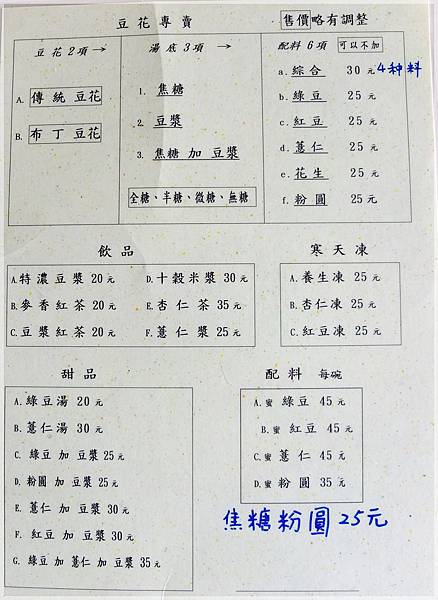 豆花專賣
售價略有調整
豆花2項→
A. 傳統 豆花
B. 布丁 豆花
湯底3項 →
1. 焦糖
2. 豆漿
3. 焦糖 加 豆漿
全糖、半糖、微糖、無糖
配料 6項 可以不加
a. 綜合 30 元 4种料
b. 綠豆 25 元
c. 紅豆 25 元
d. 薏仁 25 元
e. 花生 25 元
f. 粉圓 25 元
飲品
A.特濃豆漿 20元
B.麥香紅茶 20元
C.豆漿紅茶 20元
D.十穀米漿 30元
E.杏仁茶 35元
F.薏仁 漿 25元
寒天凍
A.養生凍 25元
B.杏仁凍 25元
C.紅豆凍 25元
甜品
A.綠豆湯 20元
B.薏仁湯 30元
C. 綠豆 加 豆漿 25元
D.粉圓 加 豆漿 25元
E. 薏仁 加 豆漿 30元
F. 紅豆 加 豆漿 30元
G. 綠豆 加 薏仁 加 豆漿 35元
配料 每碗
A.蜜 綠豆 45元
B.蜜 紅豆 45元
C.蜜 薏仁 45元
D.蜜 粉圓 35元
焦糖粉圓25元